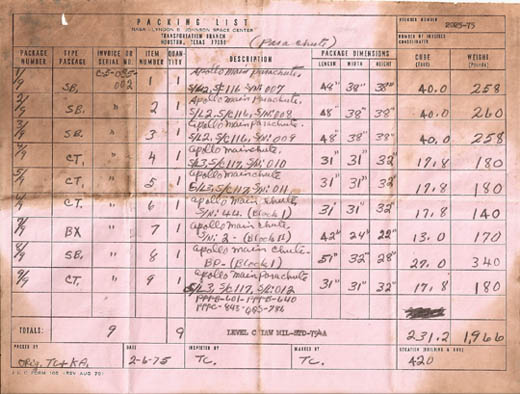 PACKING LIST
NASA-LYNDON B. JOHNSON SPACE CENTER
TRANSPORTATION BRANCH
HOUSTON, TEXAS 77058
(Parachute)
2025-75
PACKAGE NUMBER TYPE PACKAGE INVOICE OR SERIAL NO. ITEM NUMBER QUANTITY DESCRIPTION PACKAGE DIMENSIONS LENGTH WIDTH HEIGHT CUBE (Feet) WEIGHT (Pounds)
1/9 SB, 002 1 1 Apollo Main Parachute. 48" 38" 38" 40.0 258
SL2, S/C 116, S/N: 007
2/9 SB. " 2 1 Apollo Main Parachute. 48" 38" 38" 40.0 260
S/L2, S/C 116, S/N: 008
3/9 SB. " 3 1 Apollo Main Parachute. 48" 38" 38" 40.0 258
S/L2, S/C 116, S/N: 009
4/9 CT, " 4 1 Apollo Main Chute. 31" 31" 32" 17.8 180
S/L3, S/C 117, S/N: 010
5/9 CT, " 5 1 Apollo Main Chute. 31" 31" 32" 17.8 180
S/L3, S/C 117, S/N: 011
6/9 CT. " 6 1 Apollo Main Chute. 31" 31" 32" 17.8 140
(Block 1)
7/9 BX " 7 1 Apollo Main Chute. 42" 24" 22" 13.0 170
S/N: 2 -
8/9 SB. " 8 1 Apollo Main Chute. 51" 32" 28" 27.0 340
BP- (Block 1)
9/9 CT, " 9 1 Apollo Main Parachute 31" 31" 32" 17.8 180
S/L3, S/C 117, S/N: 012
TOTALS: 9 9 LEVEL C IAW MIL-STD-794A 231.2 1,966
PACKED BY DATE INSPECTED BY MARKED BY
2-6-75 TC. TC. 420